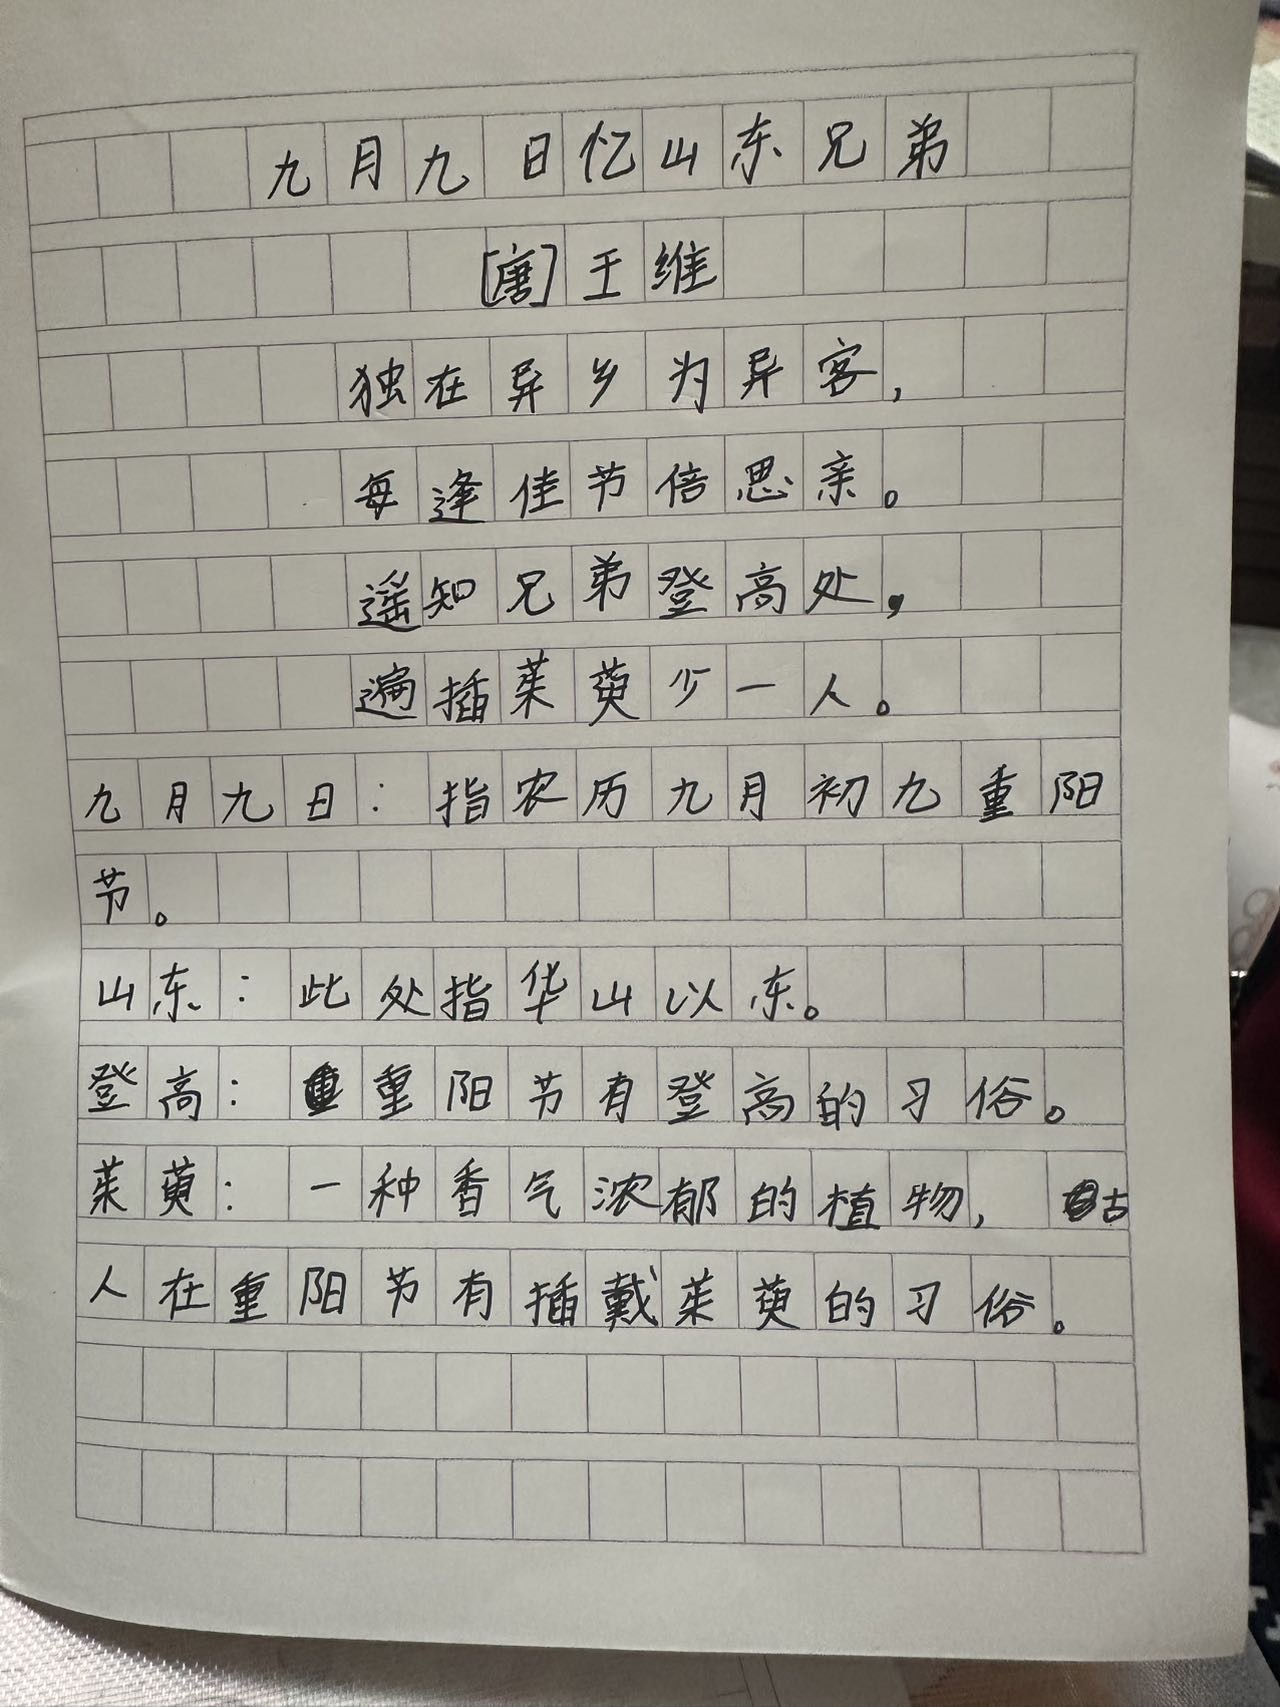 九月九日忆山东兄弟
[唐]王维
独在异乡为异客，
每逢佳节倍思亲。
遥知兄弟登高处，
遍插茱萸少一人。
九月九日：指农历九月初九重阳
节。
山东：此处指华山以东。
登高：重阳节有登高的习俗。
茱萸：一种香气浓郁的植物，古
人在重阳节有插戴茱萸的习俗。